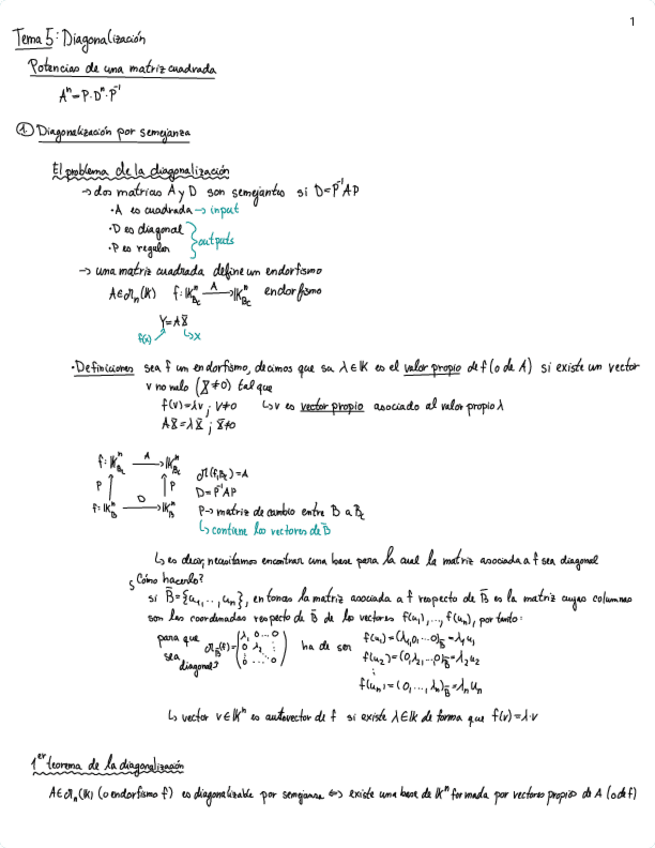 1
Tema 5: Diagonalización
Potencias de una matriz cuadrada
Aⁿ = P·Dⁿ·P⁻¹
① Diagonalización por semejanza
El problema de la diagonalización
→ dos matrices A y D son semejantes si D=P⁻¹AP
·A es cuadrada → input
·D es diagonal
·P es regular } outputs
→ una matriz cuadrada define un endorfismo
A∈ℳₙ(K) f: Kⁿ_Bc —A→ Kⁿ_Bc endorfismo
Y=AX
f(x) ↳x
·Definiciones sea f un endorfismo, decimos que sea λ∈K es el valor propio de f (o de A) si existe un vector
v no nulo (X≠0) tal que
f(v)=λv ; v≠0 ↳v es vector propio asociado al valor propio λ
AX=λX ; X≠0
f: Kⁿ_Bc —A→ Kⁿ_Bc
P↑ ↑P
f: Kⁿ_B̄ —D→ Kⁿ_B̄
ℳ(f,Bc)=A
D=P⁻¹AP
P→ matriz de cambio entre B̄ a Bc
↳ contiene los vectores de B̄
↳ es decir, necesitamos encontrar una base para la cual la matriz asociada a f sea diagonal
¿Cómo hacerlo?
si B̄={u₁,..,uₙ}, entonces la matriz asociada a f respecto de B̄ es la matriz cuyas columnas
son las coordenadas respecto de B̄ de los vectores f(u₁),.., f(uₙ), por tanto:
para que sea diagonal? ℳ_B̄(f)=(λ₁ 0...0 / 0 λ₂ ⋮ / 0 ...0) ha de ser f(u₁)=(λ₁,0,...0)_B̄=λ₁u₁
f(u₂)=(0,λ₂,...0)_B̄=λ₂u₂
⋮
f(uₙ)=(0,...,λₙ)_B̄=λₙuₙ
↳ vector v∈Kⁿ es autovector de f si existe λ∈K de forma que f(v)=λ·v
1ᵉʳ teorema de la diagonalización
A∈ℳₙ(K) (o endorfismo f) es diagonalizable por semejanza ⟺ existe una base de Kⁿ formada por vectores propios de A (o de f)